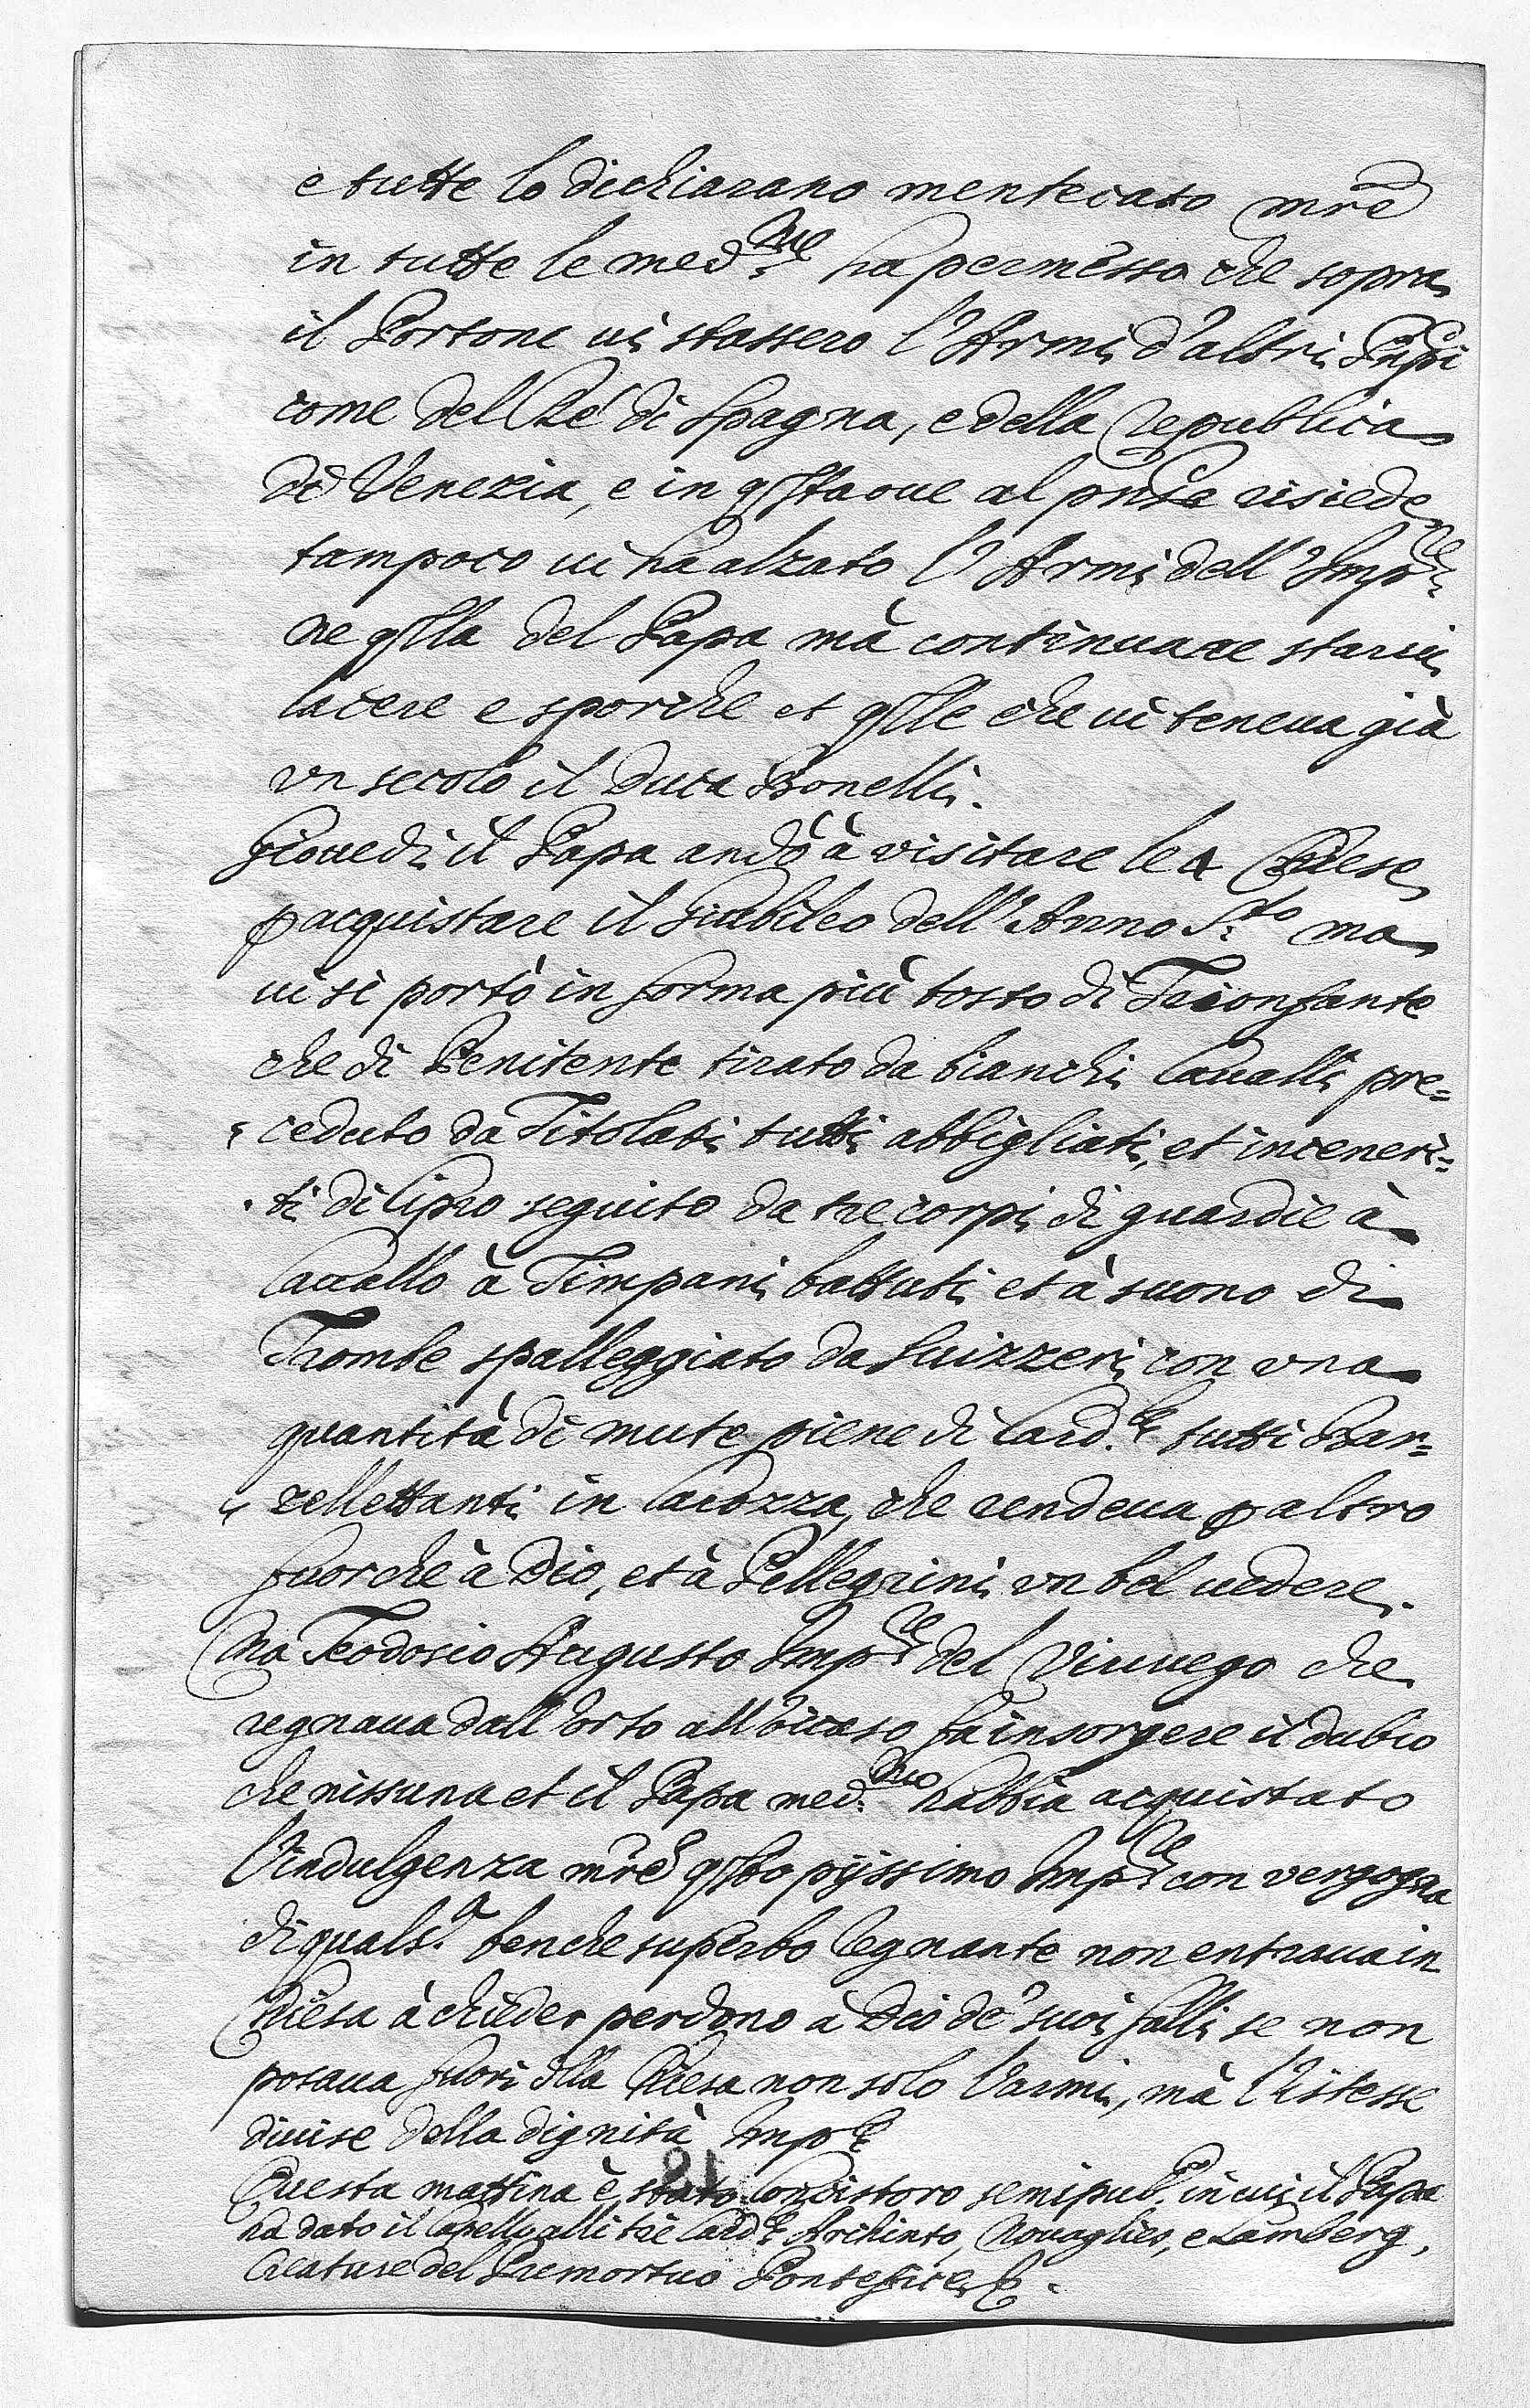 e tutte lo dichiarano mentecato mrē
in tutte le med:me ha permesso che sopra
il Portone ui stassero l'Armi d'altri Prñpi
come del Rè di Spagna, e della Republica
di Venezia, e in qsta oue al pnte risiede
tampoco ui ha alzato l'Armi dell'Impre
ne qlla del Papa mà continuare starui
lacere e sporche et qlle che ui teneua già
vn secolo il Duca Bonelli.
Giouedi il Papa andò à visitare le 4 Chiese
p acquistare il Giubileo dell'Anno S:to ma
ui si portò in forma più tosto di Trionfante
che di Penitente tirato da bianchi Caualli pre=
ceduto da Titolati tutti abbigliati, et inceneri=
ti di Cipro seguito da tre corpi di guardie à
Cauallo à Timpani battuti et à suono di
Trombe spalleggiato da Suizzeri con vna
quantità di mute piene di Card.li tutti Bar=
zellettanti in Carozza, che rendeua p altro
fuorche à Dio, et à Pellegrini vn bel uedere.
Ma Teodosio Augusto Impre del
regnaua dall'orto all'occaso fà insorgere il dubio
che nissuna et il Papa med:mo habbia acquistato
l'indulgenza mrē qsto pijssimo Impre con vergogna
di quals.a benche superbo Regnante non entraua in
Chiesa à chieder perdono à Dio de' suoi falli se non
posaua fuori dlla Chiesa non solo l'armi, mà l'istesse
diuise della dignità Imple
21
Questa mattina è stato Concistoro semipub.co in cui il Papa
hà dato il Capello alli trè Card.li Archinto, Nouaglies, e Lamberg,
Creature del Premortuo Pontefice &.